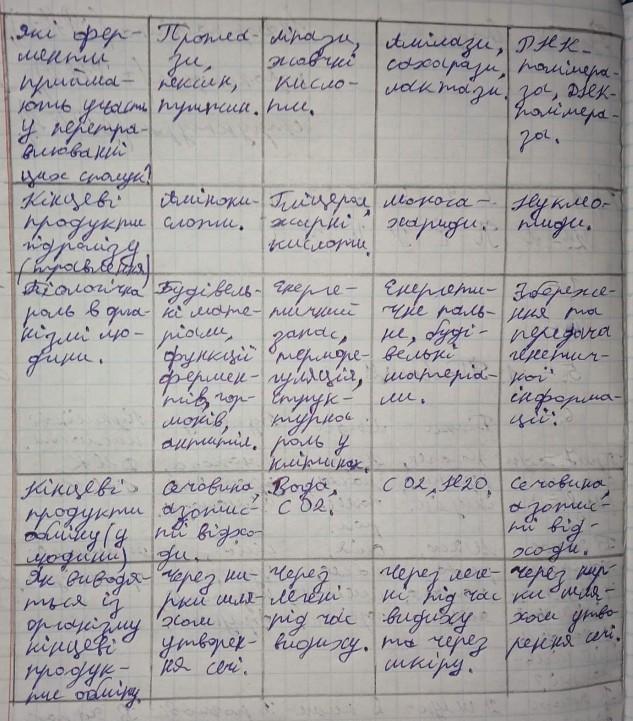 Які фер-
менти
прийма-
ють участь
у перетра-
влюванні
цих сполук?
Протеа-
зи,
пепсин,
ліпази,
жовчні
кисло-
ти.
Амілази,
сахарази,
лактази.
ДНК-
полімера-
за, РНК-
полімера-
за.
Кінцеві
продукти
гідролізу
(травлення)
Аміноки-
слоти.
Гліцерол,
жирні
кислоти.
Моноса-
хариди.
Нуклео-
тиди.
Біологічна
роль в орга-
нізмі лю-
дини.
Будівель-
ні мате-
ріали,
функції
фермен-
тів, гор-
монів,
антитіл.
Енерге-
тичний
запас,
терморе-
гуляція,
струк-
турна
роль у
клітинах.
Енергети-
чне паль-
не, буді-
вельні
матеріа-
ли.
Збереже-
ння та
передача
генетич-
ної
інформа-
ції.
Кінцеві
продукти
обміну (у
людини)
Сечовина,
азотис-
ті відхо-
ди.
Вода,
CO2.
CO2, H2O.
Сечовина,
азотис-
ті від-
ходи.
Як виводя-
ться із
організму
кінцеві
продук-
ти обміну.
Через ни-
рки шля-
хом
утворен-
ня сечі.
Через
легені
під час
видиху.
Через леге-
ні під час
видиху
та через
шкіру.
Через нир-
ки шля-
хом утво-
рення сечі.